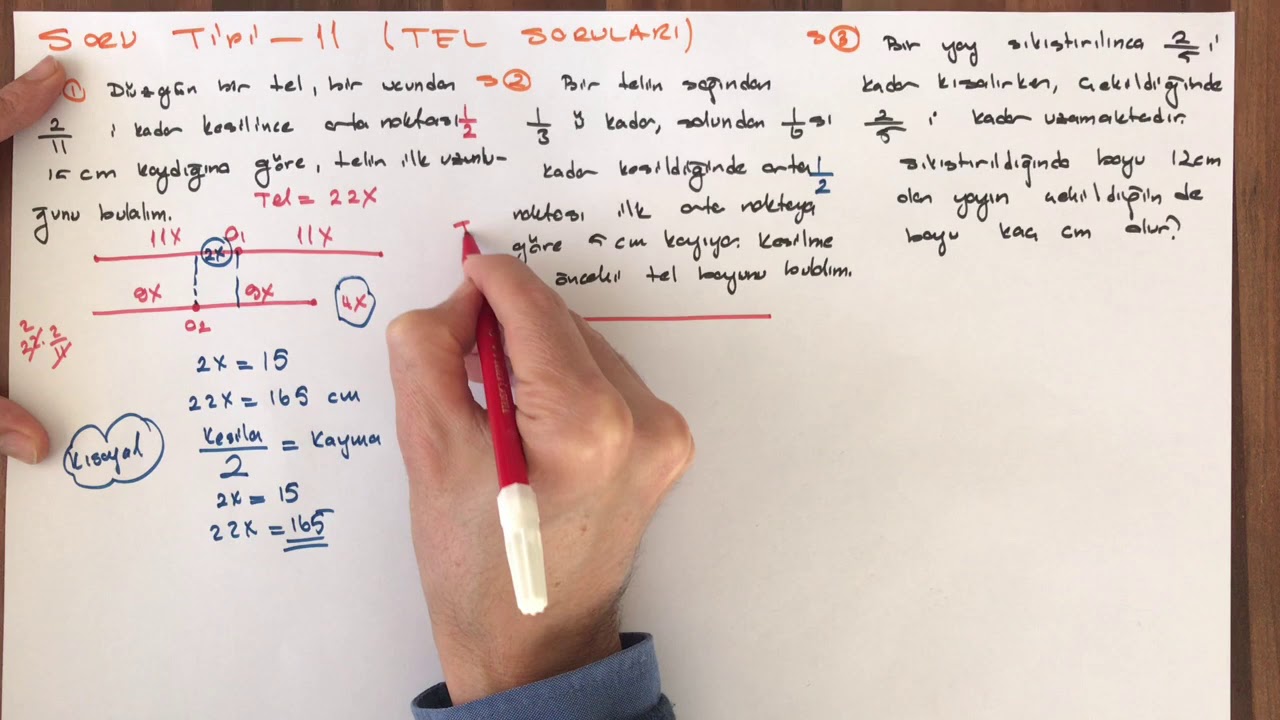 SORU TİPİ - 11 (TEL SORULARI)
① Düzgün bir tel, bir ucundan
2/11 i kadar kesilince orta noktası 1/2
15 cm kaydığına göre, telin ilk uzunlu-
ğunu bulalım.
Tel = 22X
11X O1 11X
2X
9X 9X 4X
O2
2
22. 2/11
2X = 15
22X = 165 cm
Kısayol
Kesile/2 = Kayma
2X = 15
22X = 165
② Bir telin sağından
1/3 ü kadar, solundan 1/5 si
kadar kesildiğinde orta 1/2
noktası ilk orta noktaya
göre 5 cm kayıyor. Kesilme
önceki tel boyunu bulalım.
T
③ Bir yay sıkıştırılınca 2/5 i
kadar kısalırken, çekildiğinde
2/5 i kadar uzamaktadır.
sıkıştırıldığında boyu 12cm
olan yayın çekildiğin de
boyu kaç cm olur?